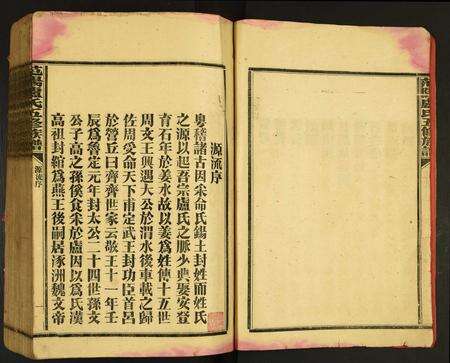 源流序
粵稽諸古因采命氏錫土封姓而姓氏
之源以起吾宗盧氏之脈少典娶安登
育石年於姜水故以姜爲姓傳十五世
周文王興遇大公於渭水後車載之歸
佐周受命天下甫定武王封功臣首呂
於營丘曰齊齊世家云敬王十一年壬
辰爲魯定元年封太公二十四世孫文
公子高之孫傒食采於盧因以爲氏漢
高祖封綰爲燕王後嗣居涿洲魏文帝
盧氏五修族譜
源流序